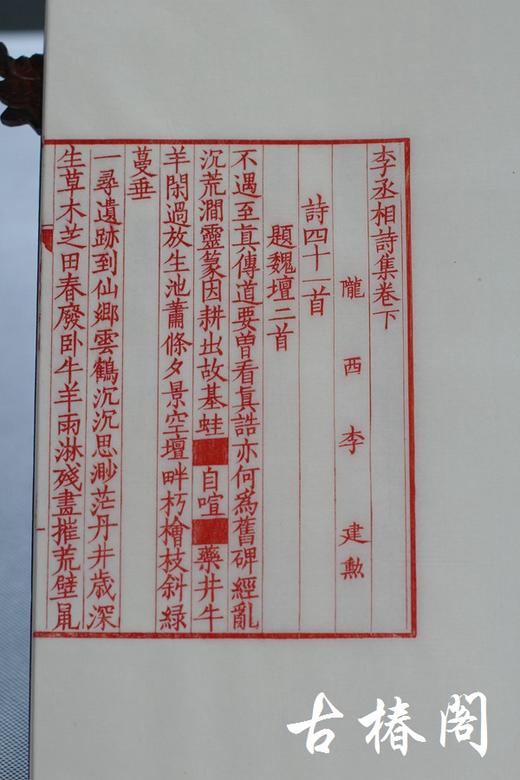 李丞相詩集卷下
隴西李建勲
詩四十一首
題魏壇二首
不遇至真傳道要曽看真誥亦何爲舊碑經亂
沉荒澗靈篆因耕出故基蛙■自喧■藥井牛
羊閑過放生池蕭條夕景空壇畔朽檜枝斜綠
蔓垂
一尋遺跡到仙鄉雲鶴沉沉思渺茫丹井歲深
生草木芝田春廢卧牛羊雨淋殘畫摧荒壁鼠
古椿閣